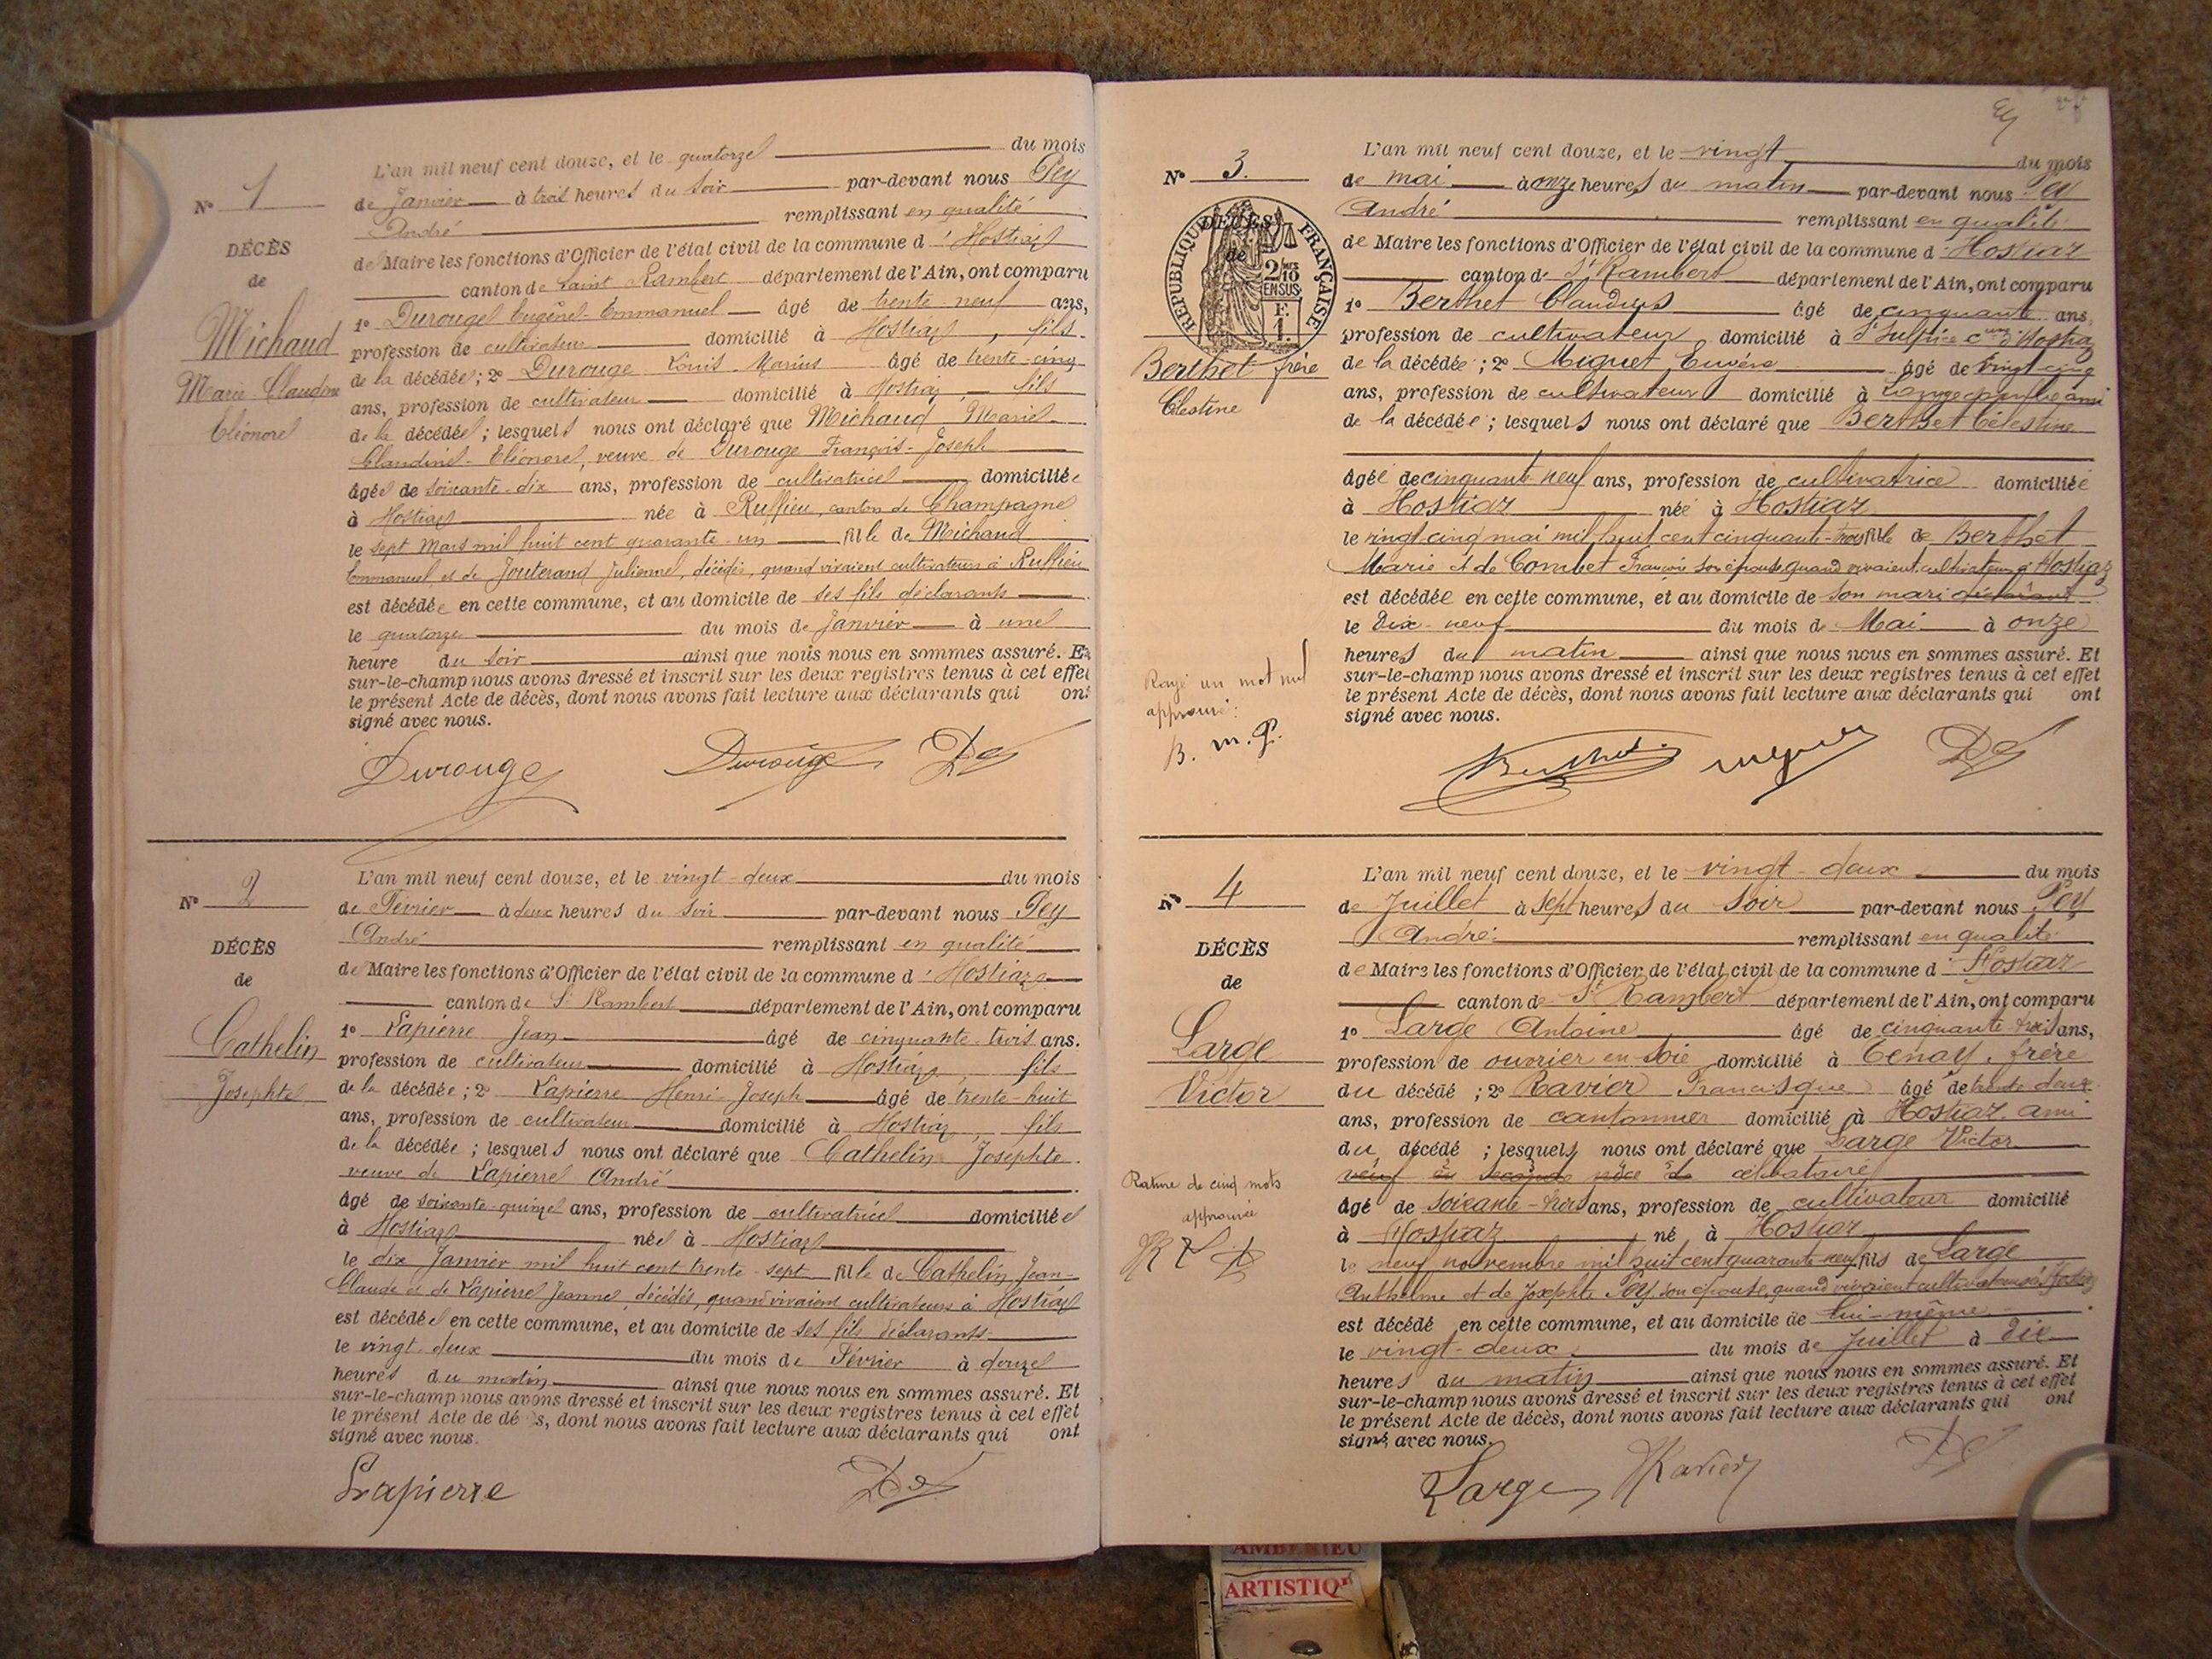 N° 1
DÉCÈS
de
Michaud
Marie Claudine
Eléonore
L'an mil neuf cent douze, et le quatorze du mois
de Janvier à trois heures du soir par-devant nous Pey
André remplissant en qualité
de Maire les fonctions d'Officier de l'état civil de la commune d'Hostiaz
canton de Saint Rambert département de l'Ain, ont comparu
1° Durouge Eugène Emmanuel âgé de trente neuf ans,
profession de cultivateur domicilié à Hostiaz, fils
de la décédée; 2° Durouge Louis Marius âgé de trente-cinq
ans, profession de cultivateur domicilié à Hostiaz, fils
de la décédée; lesquels nous ont déclaré que Michaud Marie
Claudine Eléonore, veuve de Durouge François-Joseph
âgée de soixante-dix ans, profession de cultivatrice domiciliée
à Hostiaz née à Ruffieu, canton de Champagne
le sept Mars mil huit cent quarante-un fille de Michaud
Emmanuel et de Jouterand Julienne, décédés, quand vivaient cultivateurs à Ruffieu
est décédée en cette commune, et au domicile de ses fils déclarants
le quatorze du mois de Janvier à une
heure du soir ainsi que nous nous en sommes assuré. Et
sur-le-champ nous avons dressé et inscrit sur les deux registres tenus à cet effet
le présent Acte de décès, dont nous avons fait lecture aux déclarants qui ont
signé avec nous.
Durouge Durouge
N° 2
DÉCÈS
de
Cathelin
Josephte
L'an mil neuf cent douze, et le vingt-deux du mois
de Février à deux heures du soir par-devant nous Pey
André remplissant en qualité
de Maire les fonctions d'Officier de l'état civil de la commune d'Hostiaz
canton de St Rambert département de l'Ain, ont comparu
1° Lapierre Jean âgé de cinquante-trois ans.
profession de cultivateur domicilié à Hostiaz, fils
de la décédée; 2° Lapierre Henri-Joseph âgé de trente-huit
ans, profession de cultivateur domicilié à Hostiaz, fils
de la décédée; lesquels nous ont déclaré que Cathelin Josephte
veuve de Lapierre André
âgé de soixante-quinze ans, profession de cultivatrice domiciliée
à Hostiaz née à Hostiaz
le dix Janvier mil huit cent trente-sept fille de Cathelin Jean-
Claude et de Lapierre Jeanne, décédés, quand vivaient cultivateurs à Hostiaz
est décédée en cette commune, et au domicile de ses fils déclarants
le vingt-deux du mois de Février à douze
heures du matin ainsi que nous nous en sommes assuré. Et
sur-le-champ nous avons dressé et inscrit sur les deux registres tenus à cet effet
le présent Acte de dé s, dont nous avons fait lecture aux déclarants qui ont
signé avec nous.
Lapierre
N° 3.
DÉCÈS
de
RÉPUBLIQUE FRANÇAISE
2/10 EN SUS
1 F.
Berthet
Célestine
L'an mil neuf cent douze, et le vingt du mois
de mai à onze heures du matin par-devant nous Pey
André remplissant en qualité
de Maire les fonctions d'Officier de l'état civil de la commune d'Hostiaz
canton de St Rambert département de l'Ain, ont comparu
1° Berthet Claudius âgé de cinquante ans,
profession de cultivateur domicilié à St Sulpice cne d'Hostiaz
frère de la décédée; 2° Miguet Eugène âgé de vingt-cinq
ans, profession de cultivateur domicilié à ami
de la décédée; lesquels nous ont déclaré que Berthet Célestine
âgée de cinquante-neuf ans, profession de cultivatrice domiciliée
à Hostiaz née à Hostiaz
le vingt cinq mai mil huit cent cinquante-trois fille de Berthet
Marie et de Combet Françoise son épouse quand vivaient cultivateurs à Hostiaz
est décédée en cette commune, et au domicile de son mari déclarant
le Dix-neuf du mois de Mai à onze
heures du matin ainsi que nous nous en sommes assuré. Et
sur-le-champ nous avons dressé et inscrit sur les deux registres tenus à cet effet
le présent Acte de décès, dont nous avons fait lecture aux déclarants qui ont
signé avec nous.
Rayé un mot nul
approuvé:
B. m. P.
Berthet Miguet
N° 4
DÉCÈS
de
Large
Victor
L'an mil neuf cent douze, et le vingt-deux du mois
de Juillet à sept heures du soir par-devant nous Pey
André remplissant en qualité
de Maire les fonctions d'Officier de l'état civil de la commune d'Hostiaz
canton de St Rambert département de l'Ain, ont comparu
1° Large Antoine âgé de cinquante-trois ans,
profession de ouvrier en soie domicilié à Tenay, frère
du décédé; 2° Ravier Francisque âgé de trente deux
ans, profession de cantonnier domicilié à Hostiaz, ami
du décédé; lesquels nous ont déclaré que Large Victor
veuf en seconde noce de célibataire
âgé de soixante-trois ans, profession de cultivateur domicilié
à Hostiaz né à Hostiaz
le neuf novembre mil huit cent quarante neuf fils de Large
Anthelme et de Josephte Pey son épouse, quand vivaient cultivateurs à Hostiaz
est décédé en cette commune, et au domicile de lui-même
le vingt-deux du mois de Juillet à Dix
heures du matin ainsi que nous nous en sommes assuré. Et
sur-le-champ nous avons dressé et inscrit sur les deux registres tenus à cet effet
le présent Acte de décès, dont nous avons fait lecture aux déclarants qui ont
signé avec nous.
Rature de cinq mots
approuvée
Large Ravier
AMBERIEU
ARTISTIQ